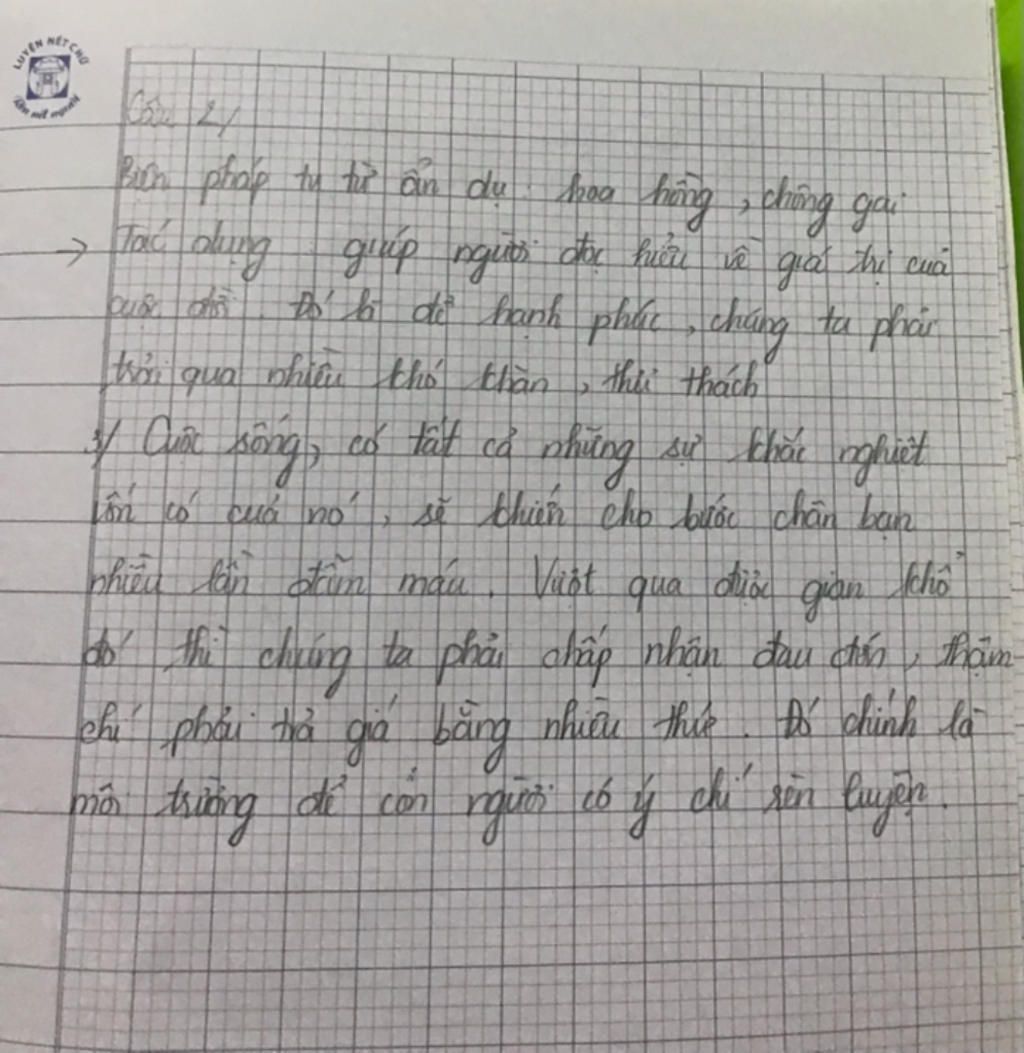 LUYỆN NÉT CHỮ
Câu 2/
Biện pháp tu từ ẩn dụ: hoa hồng, chông gai
→ Tác dụng: giúp người đọc hiểu về giá trị của
cuộc đời. Đó là để hạnh phúc, chúng ta phải
trải qua nhiều khó khăn, thử thách
3/ Cuộc sống, có tất cả những sự khắc nghiệt
vốn có của nó, sẽ khiến cho bước chân bạn
nhiều lần đẫm máu. Vượt qua được gian khổ
đó thì chúng ta phải chấp nhận đau đớn, thậm
chí phải trả giá bằng nhiều thứ. Đó chính là
môi trường để con người có ý chí rèn luyện.